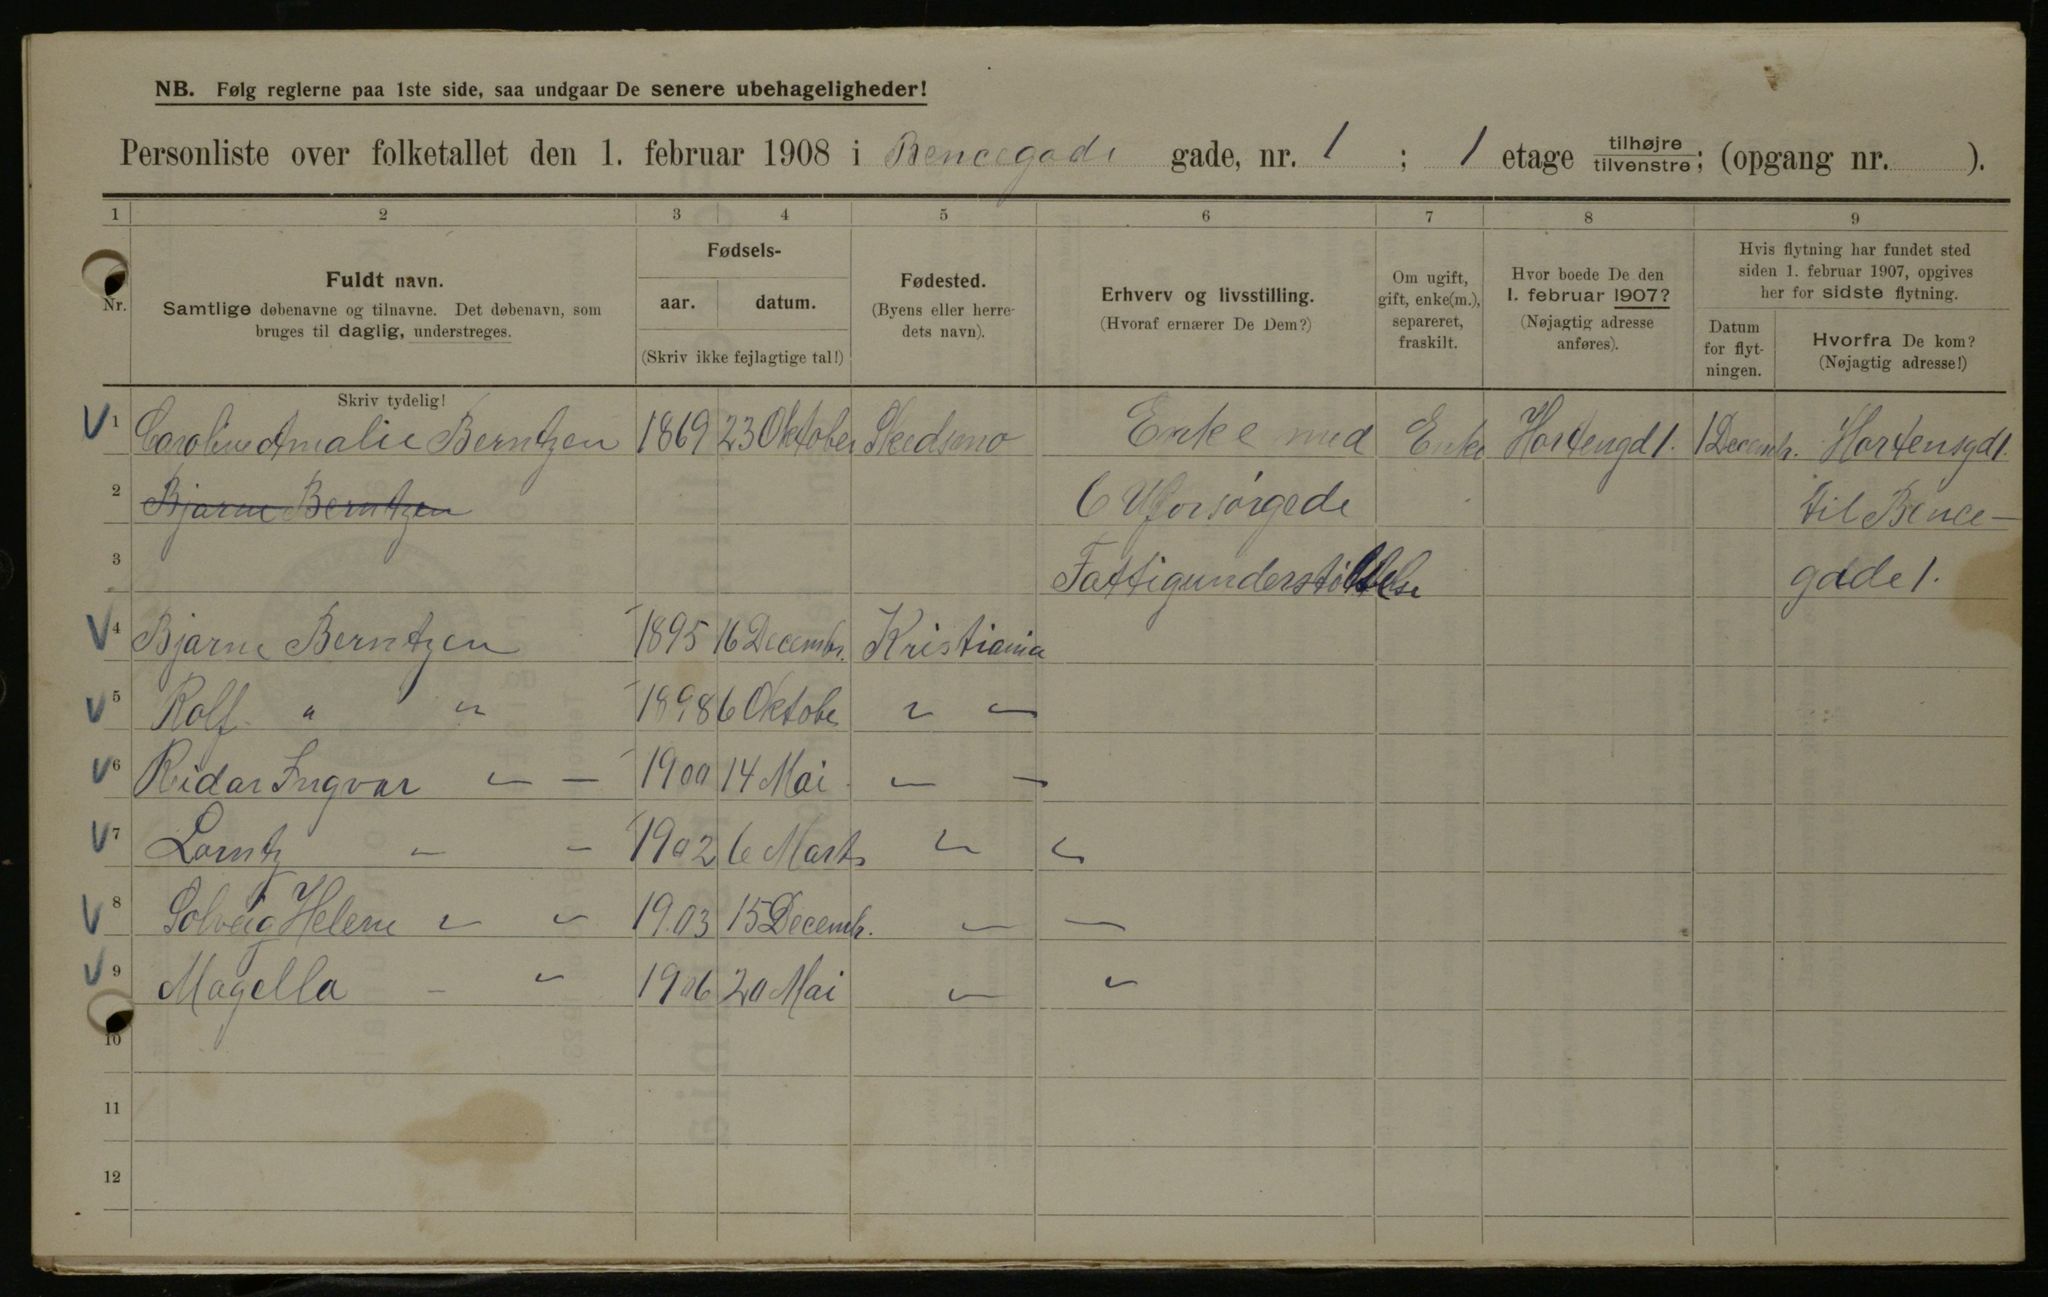 NB. Følg reglerne paa 1ste side, saa undgaar De senere ubehageligheder!
Personliste over folketallet den 1. februar 1908 i Bencegade gade, nr. 1 ; 1 etage tilhøjre/tilvenstre; (opgang nr. ).
1 2 3 4 5 6 7 8 9
Nr.
Fuldt navn.
Samtlige døbenavne og tilnavne. Det døbenavn, som
bruges til daglig, understreges.
Skriv tydelig!
Fødsels-
aar. datum.
(Skriv ikke fejlagtige tal!)
Fødested.
(Byens eller herre-
dets navn).
Erhverv og livsstilling.
(Hvoraf ernærer De Dem?)
Om ugift,
gift, enke(m.),
separeret,
fraskilt.
Hvor boede De den
1. februar 1907?
(Nøjagtig adresse
anføres).
Hvis flytning har fundet sted
siden 1. februar 1907, opgives
her for sidste flytning.
Datum
for flyt-
ningen.
Hvorfra De kom?
(Nøjagtig adresse!)
V 1 Caroline Amalie Berntzen 1869 23 Oktober Skedsmo Enke med Enke Hortengd 1. 1 Decembr. Hortensgd 1.
2 Bjarne Berntzen 6 Uforsørgede til Bence-
3 Fattigunderstøttelse gade 1.
V 4 Bjarne Berntzen 1895 16 Decembr. Kristiania
V 5 Rolf " " 1898 6 Oktober " —
V 6 Reidar Ingvar " — 1900 14 Mai " —
V 7 Lorntz " — 1902 6 Marts " "
V 8 Solveig Helene " " 1903 15 Decembr. " —
V 9 Magella — " 1906 20 Mai " "
10
11
12